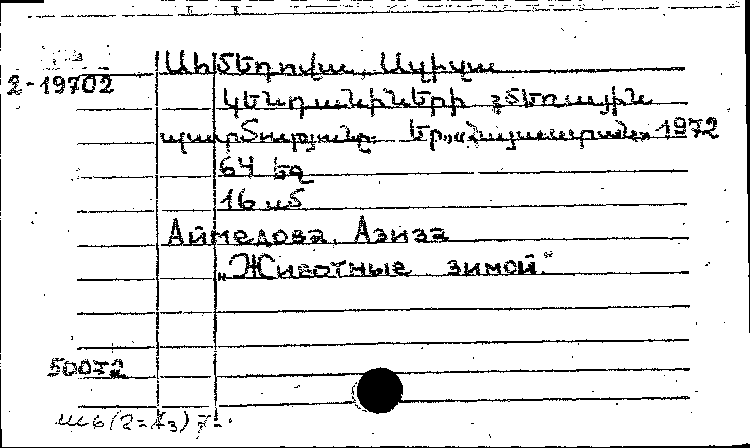 2-19702
Ահմեդովա, Ազիզա
Կենդանիների ձմեռային
Եր., «Հայաստան» 1972
64 էջ
16 ս
Аймедова, Азиза
„Животные зимой.“
50072